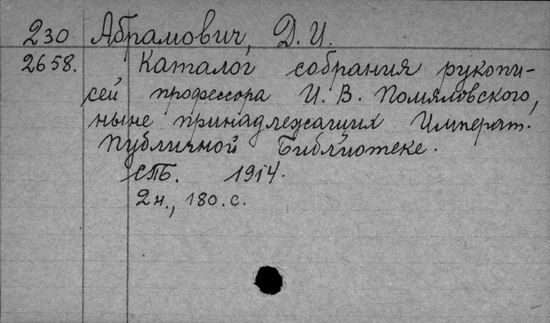 230 Абрамович, Д. И.
2658. Каталог собрания рукопи-
сей профессора И. В. Помяловского,
ныне принадлежащих Императ.
Публичной Библиотеке.
СПБ. 1914.
2н., 180.с.